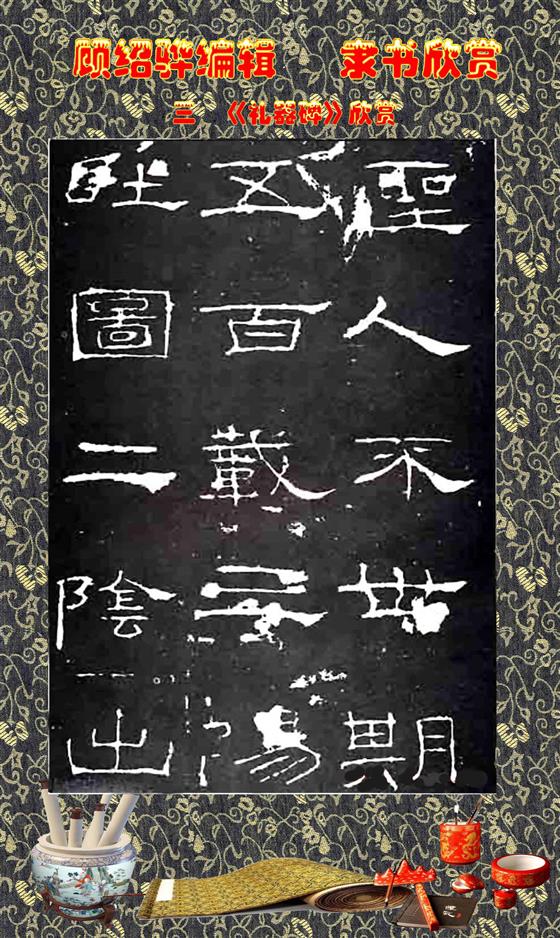 顾绍骅编辑 隶书欣赏
三 《礼器碑》欣赏
聖人不世期
五百載三陽
吐圖二陰出